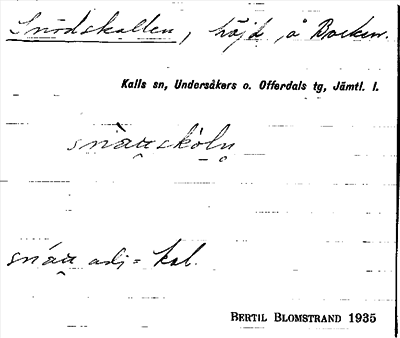 Snödskallen, höjd å Backen.
Kalls sn, Undersåkers o. Offerdals tg, Jämtl. l.
adj = kal.
BERTIL BLOMSTRAND 1935